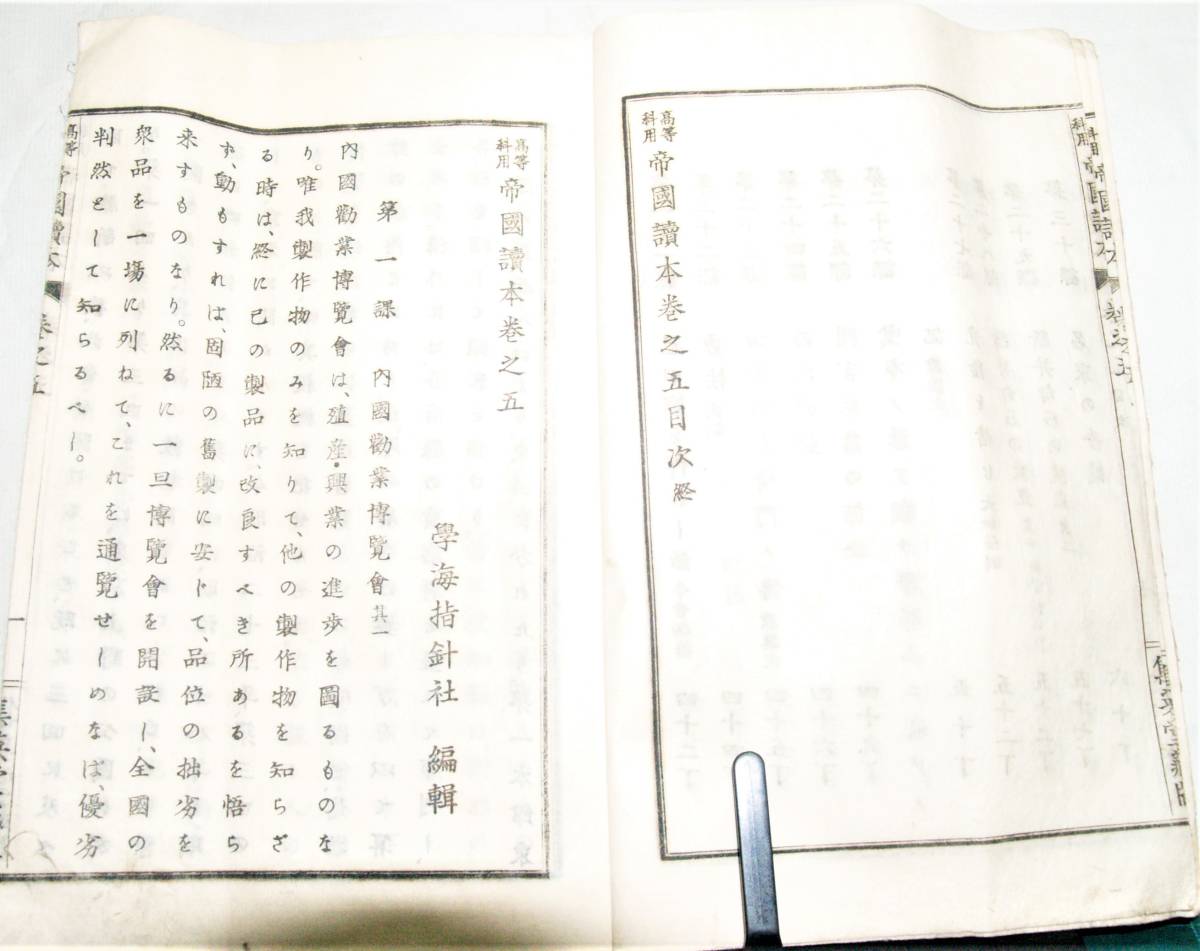 高等科用 帝國讀本卷之五目次 終
高等科用 帝國讀本卷之五
學海指針社 編輯
第一課 內國勸業博覽會 其一
內國勸業博覽會は、殖産・興業の進步を圖るものな
り。唯我製作物のみを知りて、他の製作物を知らざ
る時は、終に己の製品に、改良すべき所あるを悟ら
ず、動もすれば、固陋の舊製に安じて、品位の拙劣を
来すものなり。然るに一旦博覽會を開設し、全國の
衆品を一場に列ねて、これを通覽せしめなば、優劣
判然として知らるべし。
高等 帝國讀本 卷之五 一